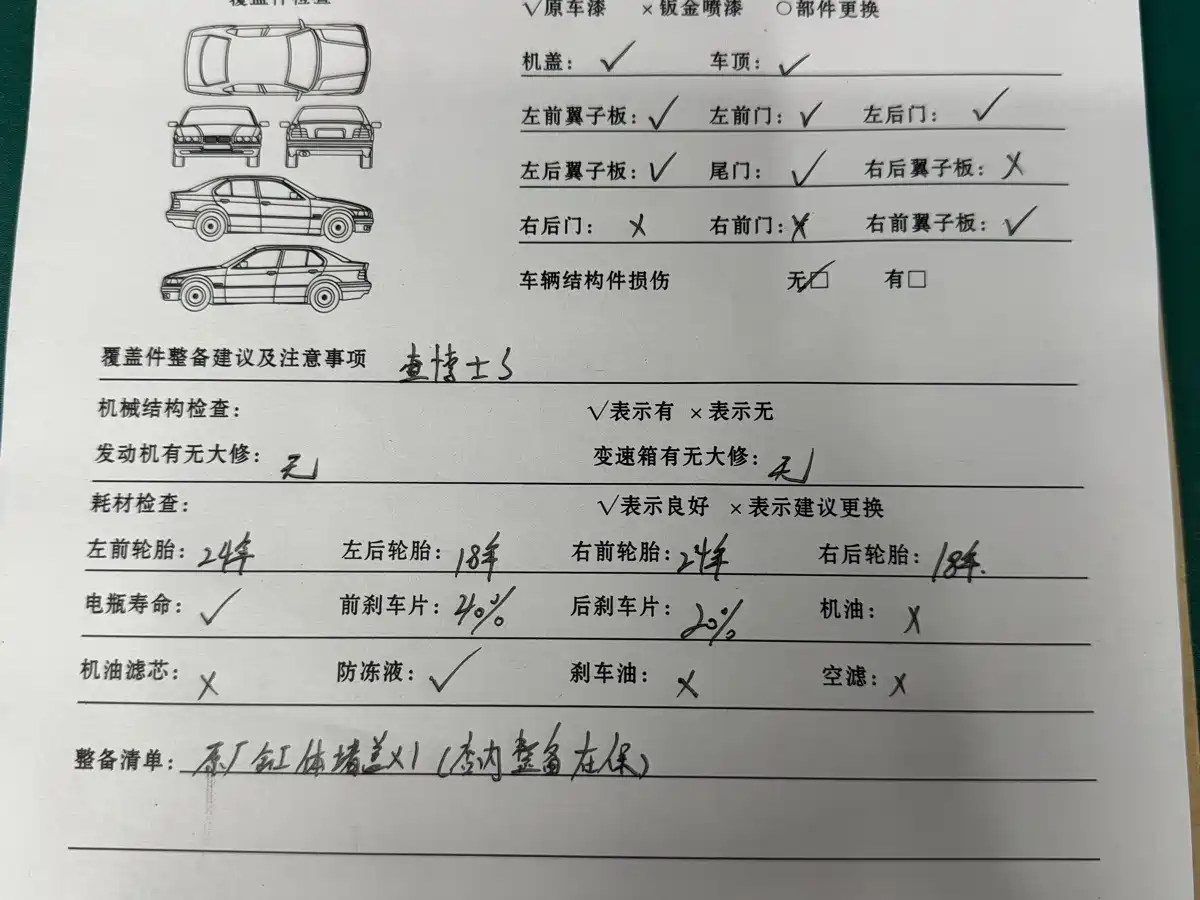 覆盖件检查
√原车漆 ×钣金喷漆 ○部件更换
机盖：✓ 车顶：✓
左前翼子板：✓ 左前门：✓ 左后门：✓
左后翼子板：✓ 尾门：✓ 右后翼子板：×
右后门：× 右前门：× 右前翼子板：✓
车辆结构件损伤 无☑ 有□
覆盖件整备建议及注意事项 查博士S
机械结构检查： √表示有 ×表示无
发动机有无大修：无 变速箱有无大修：无
耗材检查： √表示良好 ×表示建议更换
左前轮胎：24年 左后轮胎：18年 右前轮胎：24年 右后轮胎：18年.
电瓶寿命：✓ 前刹车片：40% 后刹车片：20% 机油：×
机油滤芯：× 防冻液：✓ 刹车油：× 空滤：×
整备清单：原厂缸体堵盖×1（店内整备在保）